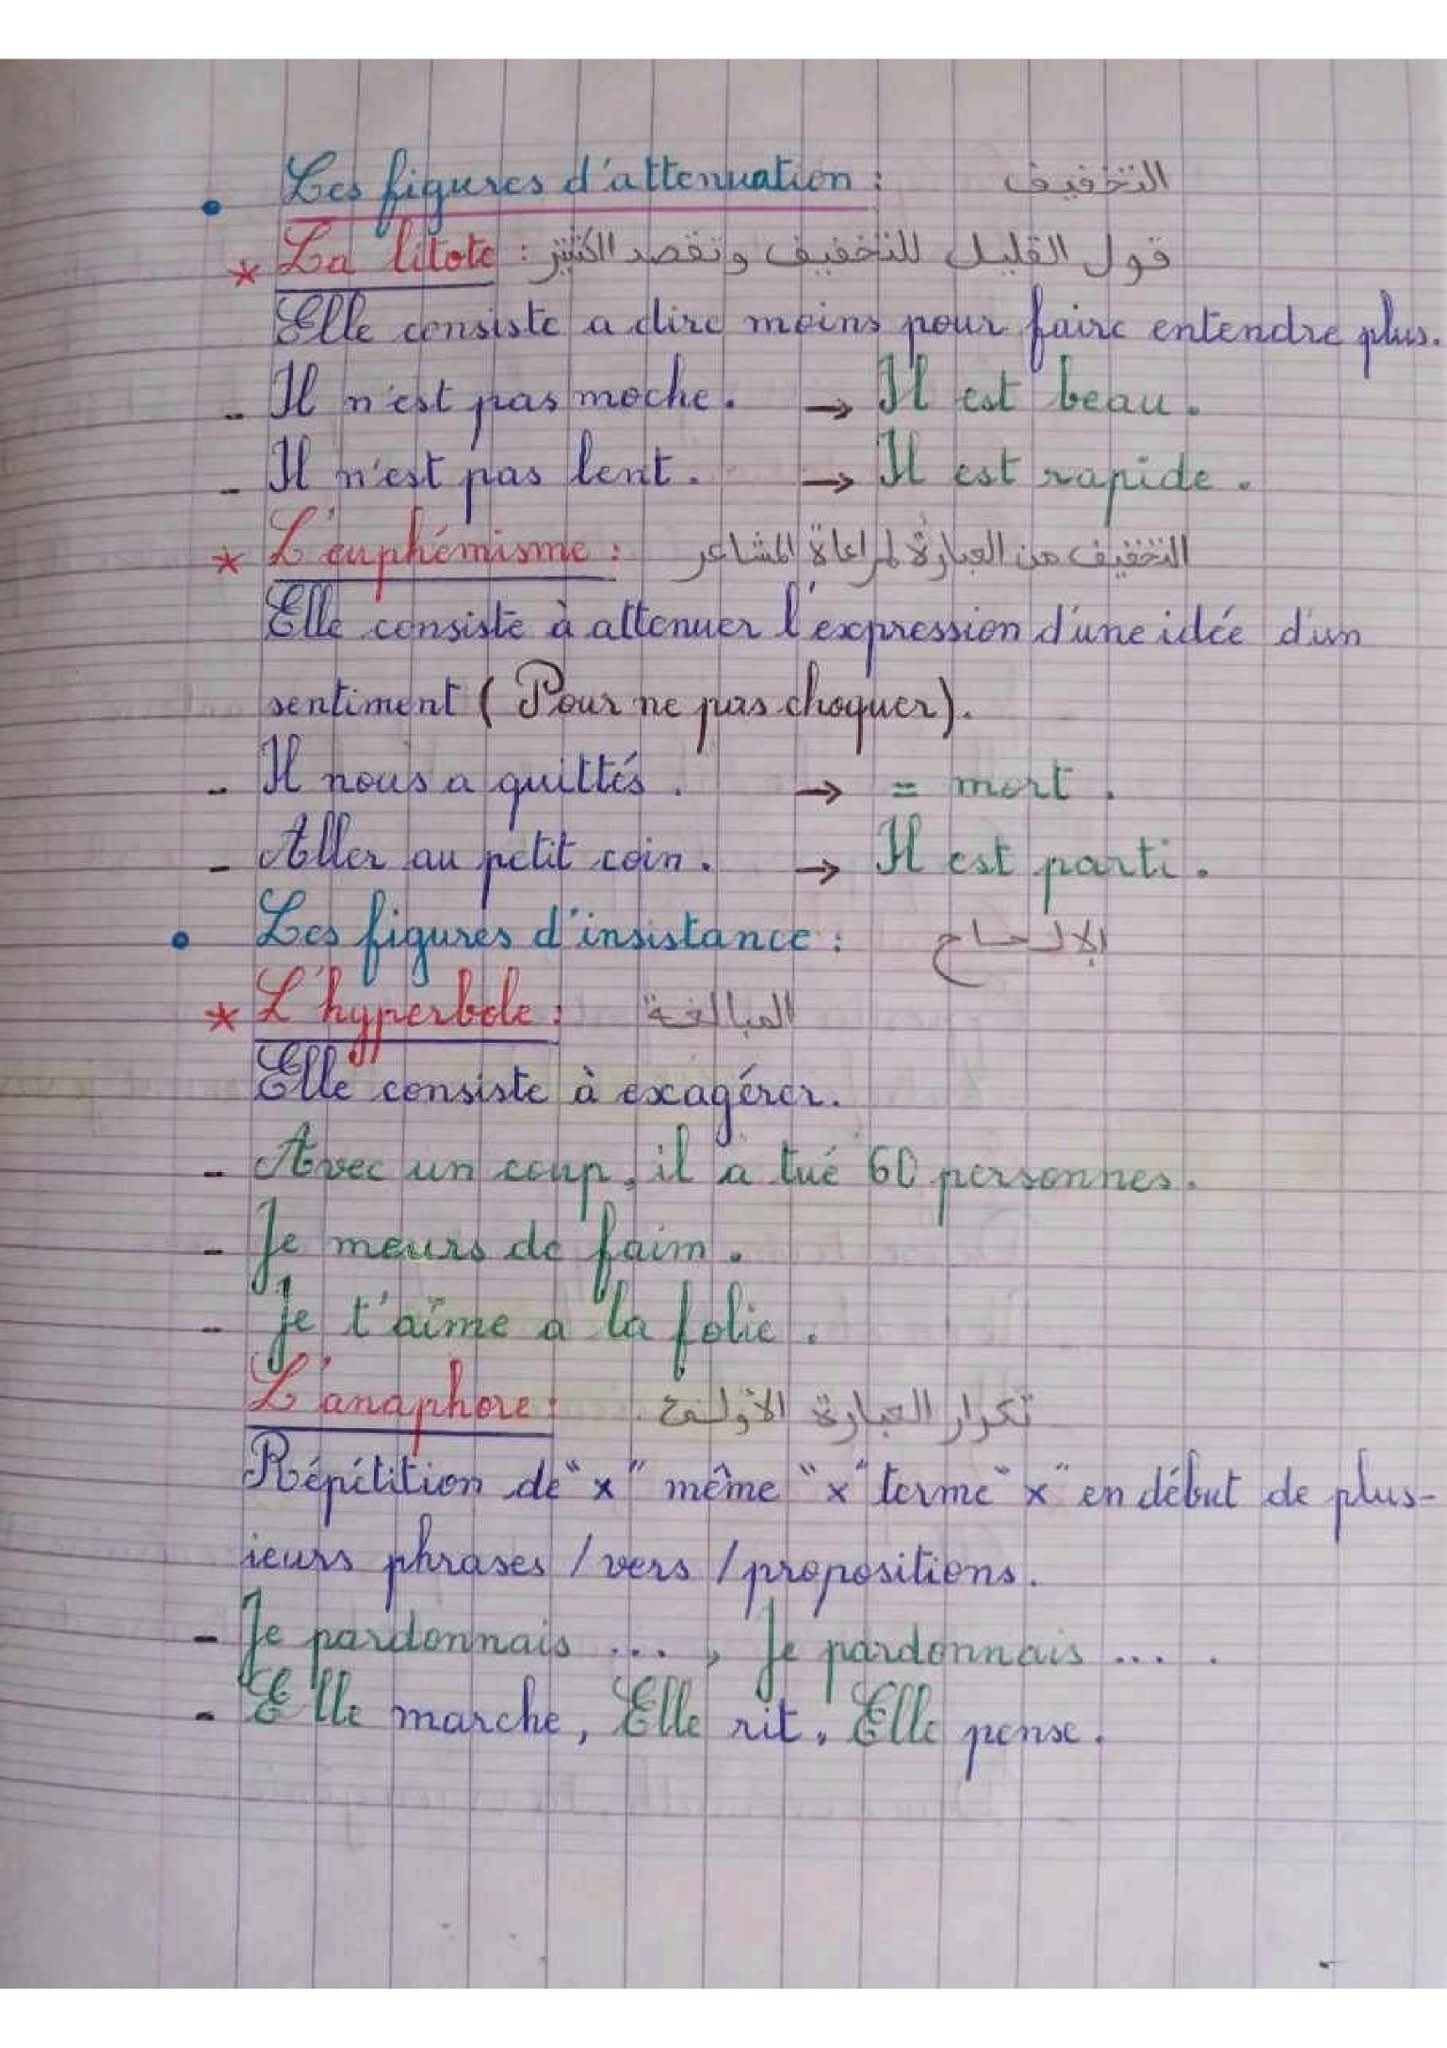 • Les figures d'attenuation : التخفيف
* La litote : قول القليل للتخفيف وتقصد الكثير
Elle consiste a dire moins pour faire entendre plus.
- Il n'est pas moche. → Il est beau.
- Il n'est pas lent. → Il est rapide.
* L'euphémisme : التخفيف من العبارة لمراعاة المشاعر
Elle consiste à attenuer l'expression d'une idée d'un
sentiment ( Pour ne pas choquer).
- Il nous a quittés. → = mort.
- Aller au petit coin. → Il est parti.
• Les figures d'insistance : الإلحاح
* L'hyperbole : المبالغة
Elle consiste à exagérer.
- Avec un coup, il a tué 60 personnes.
- Je meurs de faim.
- je t'aime a la folie.
L'anaphore : تكرار العبارة الأولى
Répétition de "x" même "x" terme "x" en début de plus-
ieurs phrases / vers / propositions.
- Je pardonnais ... , Je pardonnais ... .
- Elle marche, Elle rit, Elle pense.